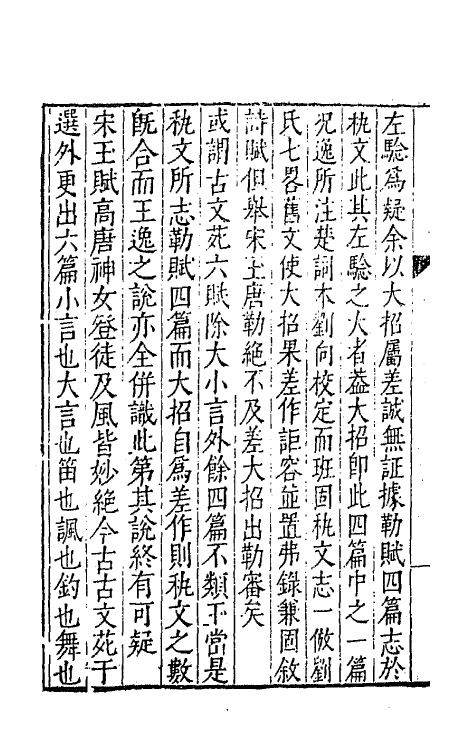 左驗爲疑余以大招屬差誠無証據勒賦四篇志於
秇文此其左驗之大者葢大招卽此四篇中之一篇
况逸所注楚詞本劉向校定而班固秇文志一倣劉
氏七畧舊文使大招果差作詎容竝置弗錄兼固敘
詩賦但舉宋玉唐勒絶不及差大招出勒審矣
或謂古文苑六賦除大小言外餘四篇不類玉當是
秇文所志勒賦四篇而大招自爲差作則秇文之數
旣合而王逸之說亦全併識此第其說終有可疑
宋玉賦高唐神女登徒及風皆妙絶今古古文苑于
選外更出六篇小言也大言也笛也諷也釣也舞也